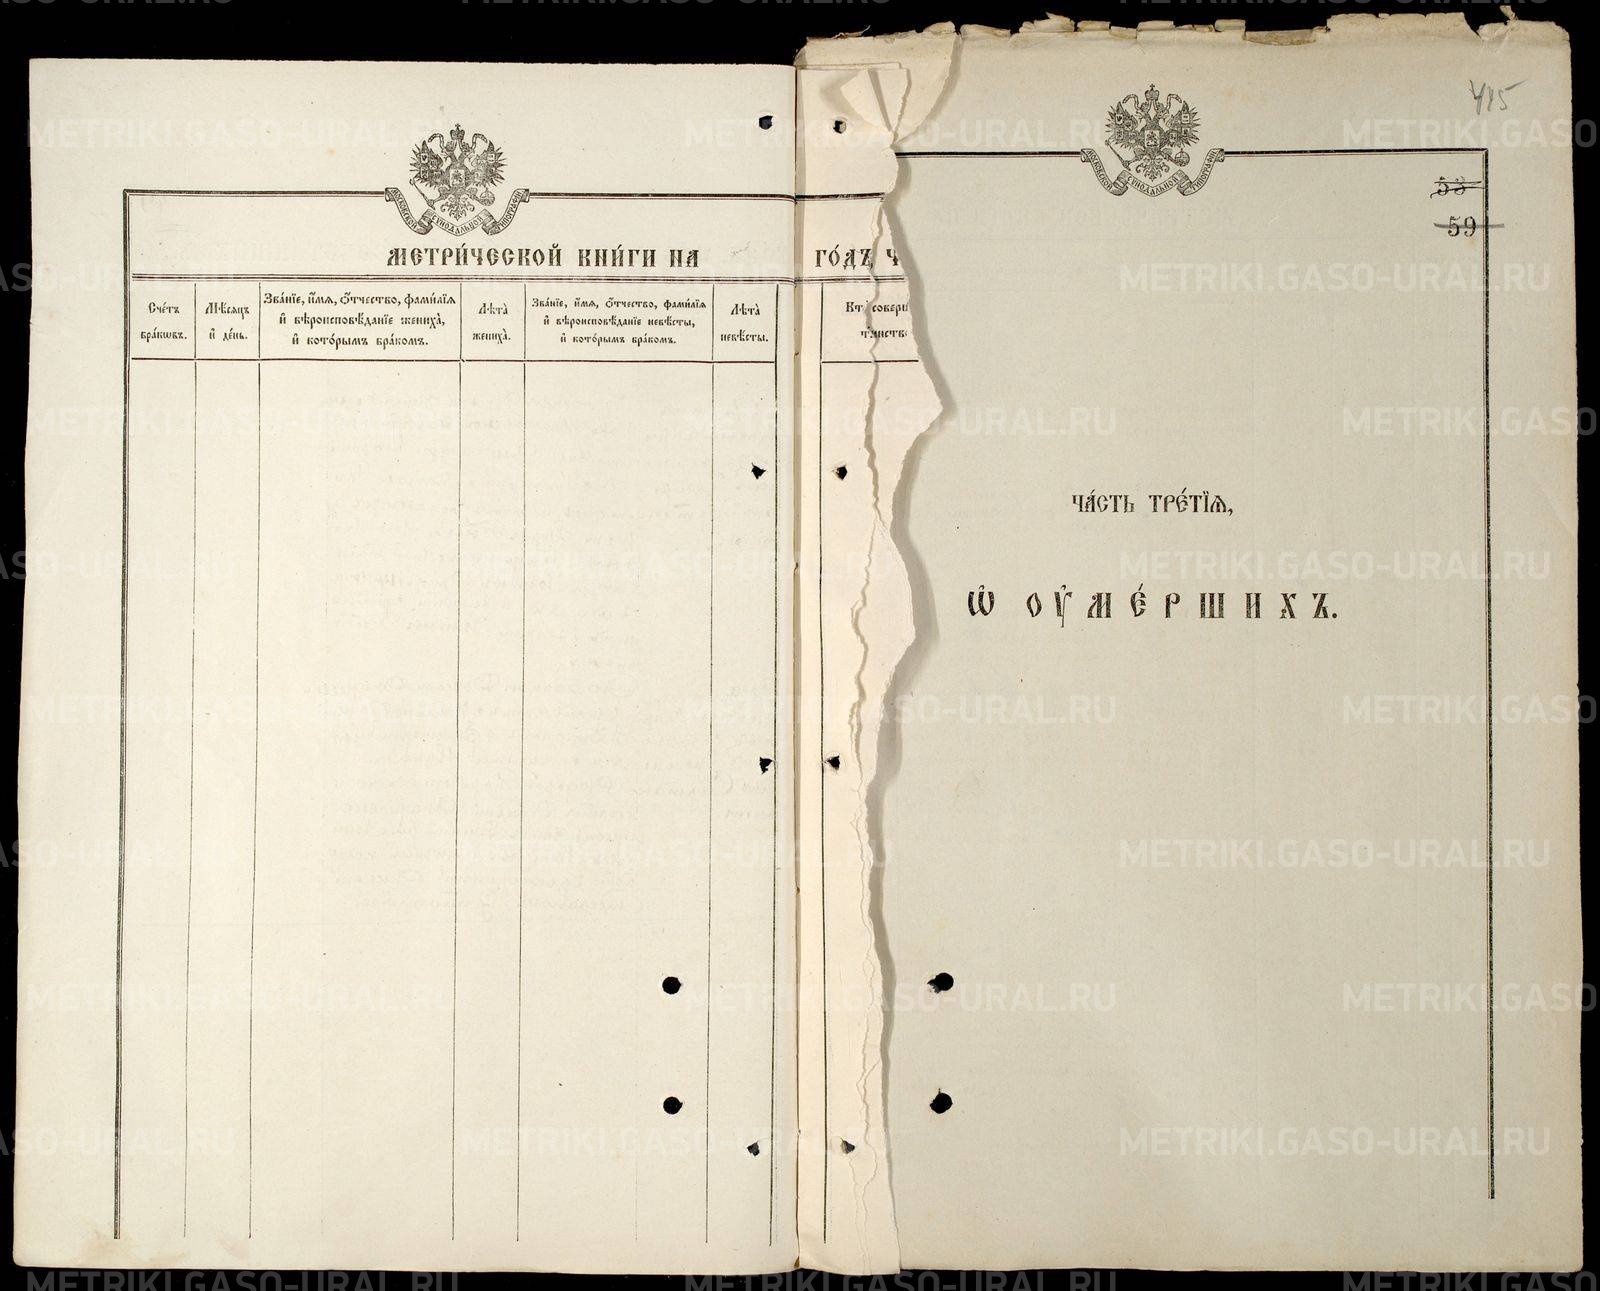 МОСКОВСКОЙ СѴНОДАЛЬНОЙ ТИПОГРАФІИ
МЕТРИ́ЧЕСКОЙ КНИ́ГИ НА
Сче́тъ бра́кѡвъ.
Мѣ́сяцъ и҆ де́нь.
Зва́нїе, и҆́мѧ, ѻ҆́тчество, фами́лїѧ
и҆ вѣроисповѣ́данїе жениха̀,
и҆ кото́рымъ бра́комъ.
Лѣ́та жениха̀.
Зва́нїе, и҆́мѧ, ѻ҆́тчество, фами́лїѧ
и҆ вѣроисповѣ́данїе невѣ́сты,
и҆ кото́рымъ бра́комъ.
Лѣ́та невѣ́сты.
ГО́ДЪ, Ч
Кто̀ соверш
та́инство
415
МОСКОВСКОЙ СѴНОДАЛЬНОЙ ТИПОГРАФІИ
53
59
ЧА́СТЬ ТРЕ́ТЇѦ,
Ѡ҆ ОУ҆МЕ́РШИХЪ.
METRIKI.GASO-URAL.RU